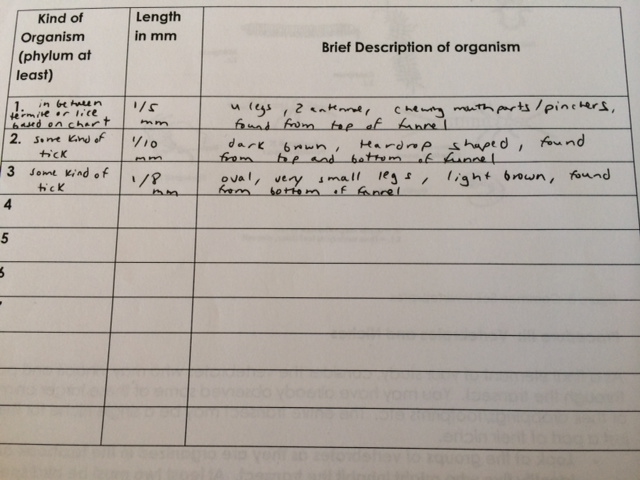 Kind of
Organism
(phylum at
least)
Length
in mm
Brief Description of organism
1. in between
termite or lice
based on chart
1/5
mm
4 legs, 2 antennae, chewing mouthparts/pinchers,
found from top of funnel
2. some kind of
tick
1/10
mm
dark brown, teardrop shaped, found
from top and bottom of funnel
3 some kind of
tick
1/8
mm
oval, very small legs, light brown, found
from bottom of funnel
4
5